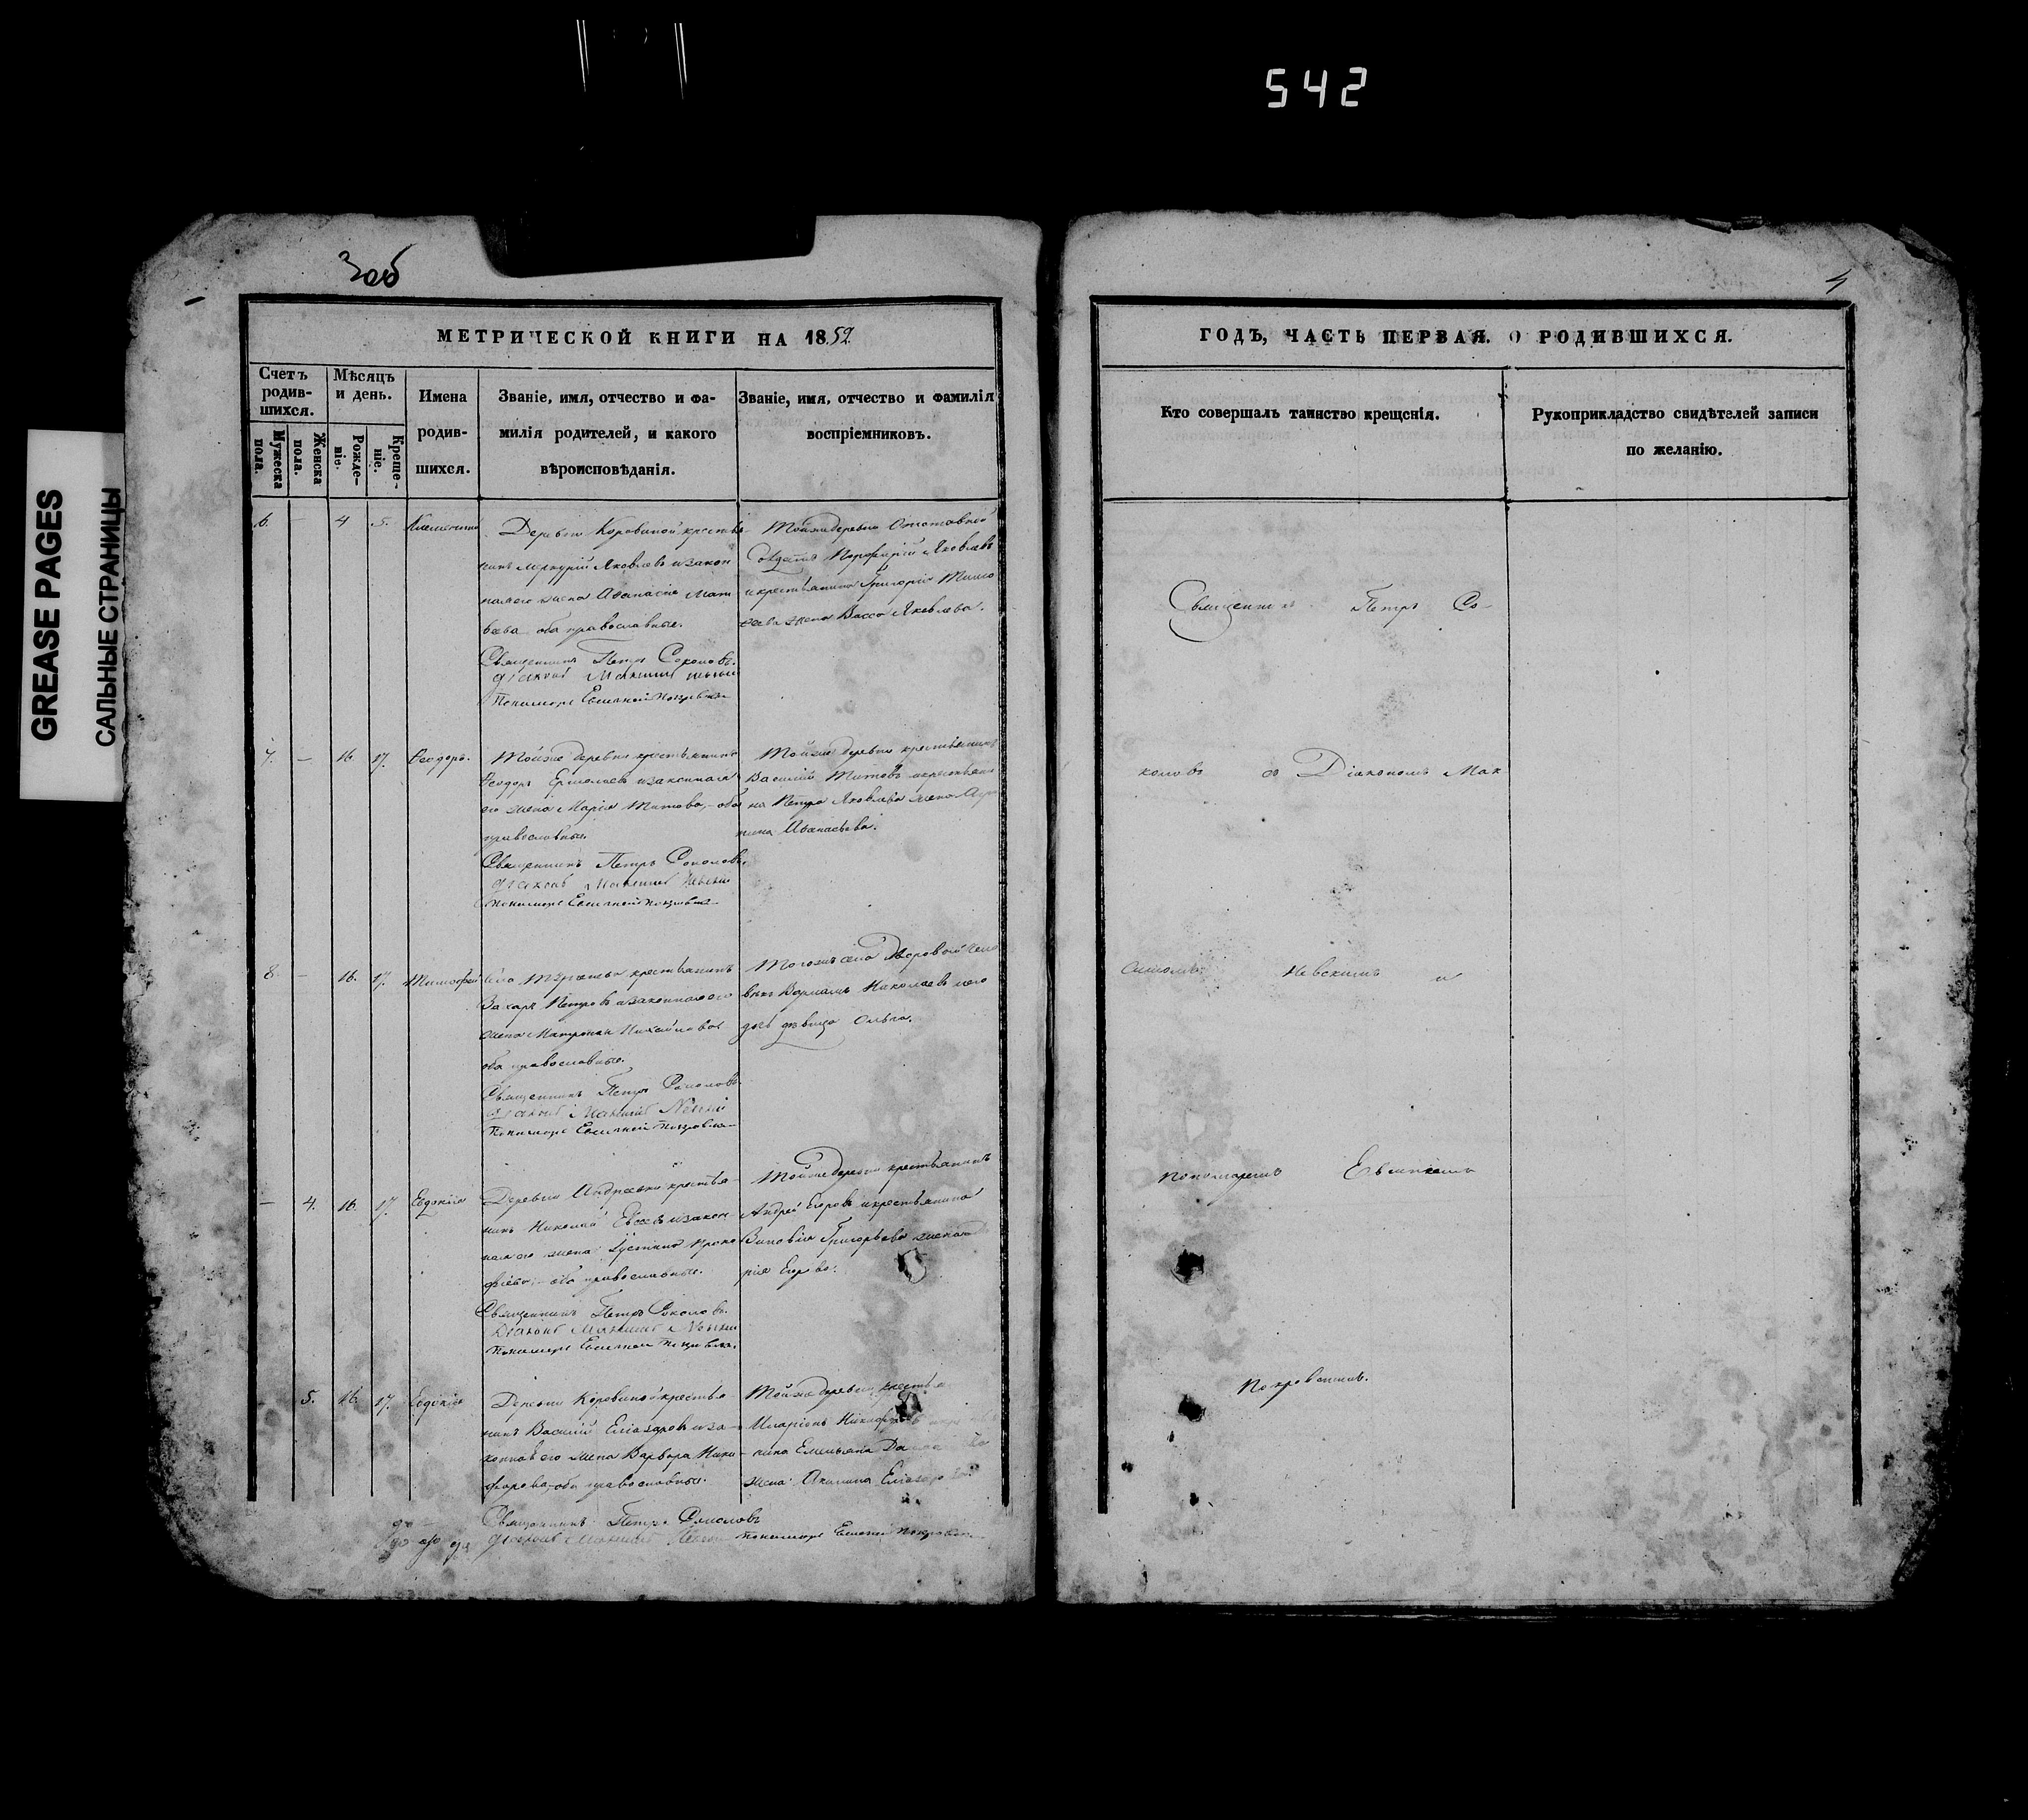 542
GREASE PAGES
САЛЬНЫЕ СТРАНИЦЫ
Зоб
4
МЕТРИЧЕСКОЙ КНИГИ НА 1852
Счетъ родив-шихся.
Мужеска пола.
Женска пола.
Мѣсяцъ и день.
Рожде-ніе.
Креще-ніе.
Имена
родив-
шихся.
Званіе, имя, отчество и фа-
милія родителей, и какого
вѣроисповѣданія.
Званіе, имя, отчество и фамилія
воспріемниковъ.
6. - 4 5.
Деревни Коровиной крестья-
нинъ Меркурій Яковлевъ и закон
ная его жена Афанасія Мат
веева оба православные.
Священникъ Петръ Соколовъ.
Діаконъ Максимъ
Пономарь Евменій Покровскій
Тойже деревни Отставной
Солдатъ Порфирій Яковлевъ
и крестьянина Григорія Тимо
феева жена Васса Яковлева.
7. - 16. 17. Ѳеодоръ.
Тойже деревни крестьянинъ
Ѳеодоръ Ермолаевъ и законная
его жена Марія Титова, оба
православные.
Священникъ Петръ Соколовъ.
Діаконъ Максимъ Невскій
Пономарь Евменій Покровскій
Тойже деревни крестьянинъ
Василій Титовъ и крестьяни
на Петра Яковлева жена
Афанасьева.
8. - 16. 17. Тимофей
Села крестьянинъ
Захаръ Петровъ и законная его
жена Матрона Михайлова
оба православные.
Священникъ Петръ Соколовъ.
Діаконъ Максимъ Невскій
Пономарь Евменій Покровскій
Тогожъ села Дворовой чело
вѣкъ Варламъ Николаевъ и его
дѣвица Ольга.
- 4. 16. 17. Евдокія
Деревни Андреевки крестья-
нинъ Николай Евсеевъ и закон-
ная его жена Устинья Проко
фіева, оба православные.
Священникъ Петръ Соколовъ.
Діаконъ Максимъ Невскій
Пономарь Евменій Покровскій
Тойже деревни крестьянинъ
Андрей Егоровъ и крестьянина
Зиновія Григорьева жена
рія Егорова.
5. 16. 17. Евдокія
Деревни Коровиной крестья-
нинъ Василій Елизаровъ и за-
конная его жена Варвара Ники-
форова, оба православные.
Священникъ Петръ Соколовъ
Діаконъ Максимъ Невскій Пономарь Евменій Покровскій
Тойже деревни крестья
Иларіонъ Никифоровъ
нина Емельяна
жена Акилина
ГОДЪ, ЧАСТЬ ПЕРВАЯ. О РОДИВШИХСЯ.
Кто совершалъ таинство крещенія.
Рукоприкладство свидѣтелей записи
по желанію.
Священникъ Петръ Со-
коловъ со Діакономъ Мак
симомъ Невскимъ и
пономаремъ Евменіемъ
Покровскимъ.